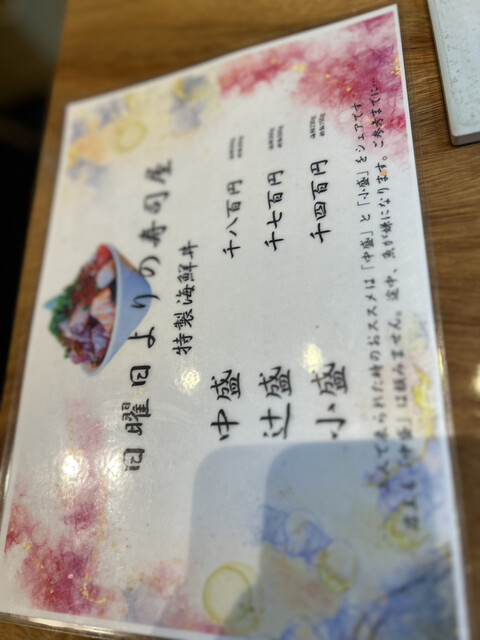 日曜日よりの寿司屋
特製海鮮丼
中盛 千八百円
辻盛 千七百円
小盛 千四百円
人で来られた時のおススメは「中盛」と「小盛」をシェアです
「中盛」は頼みません。途中、魚が嫌になります。ご参考までに…